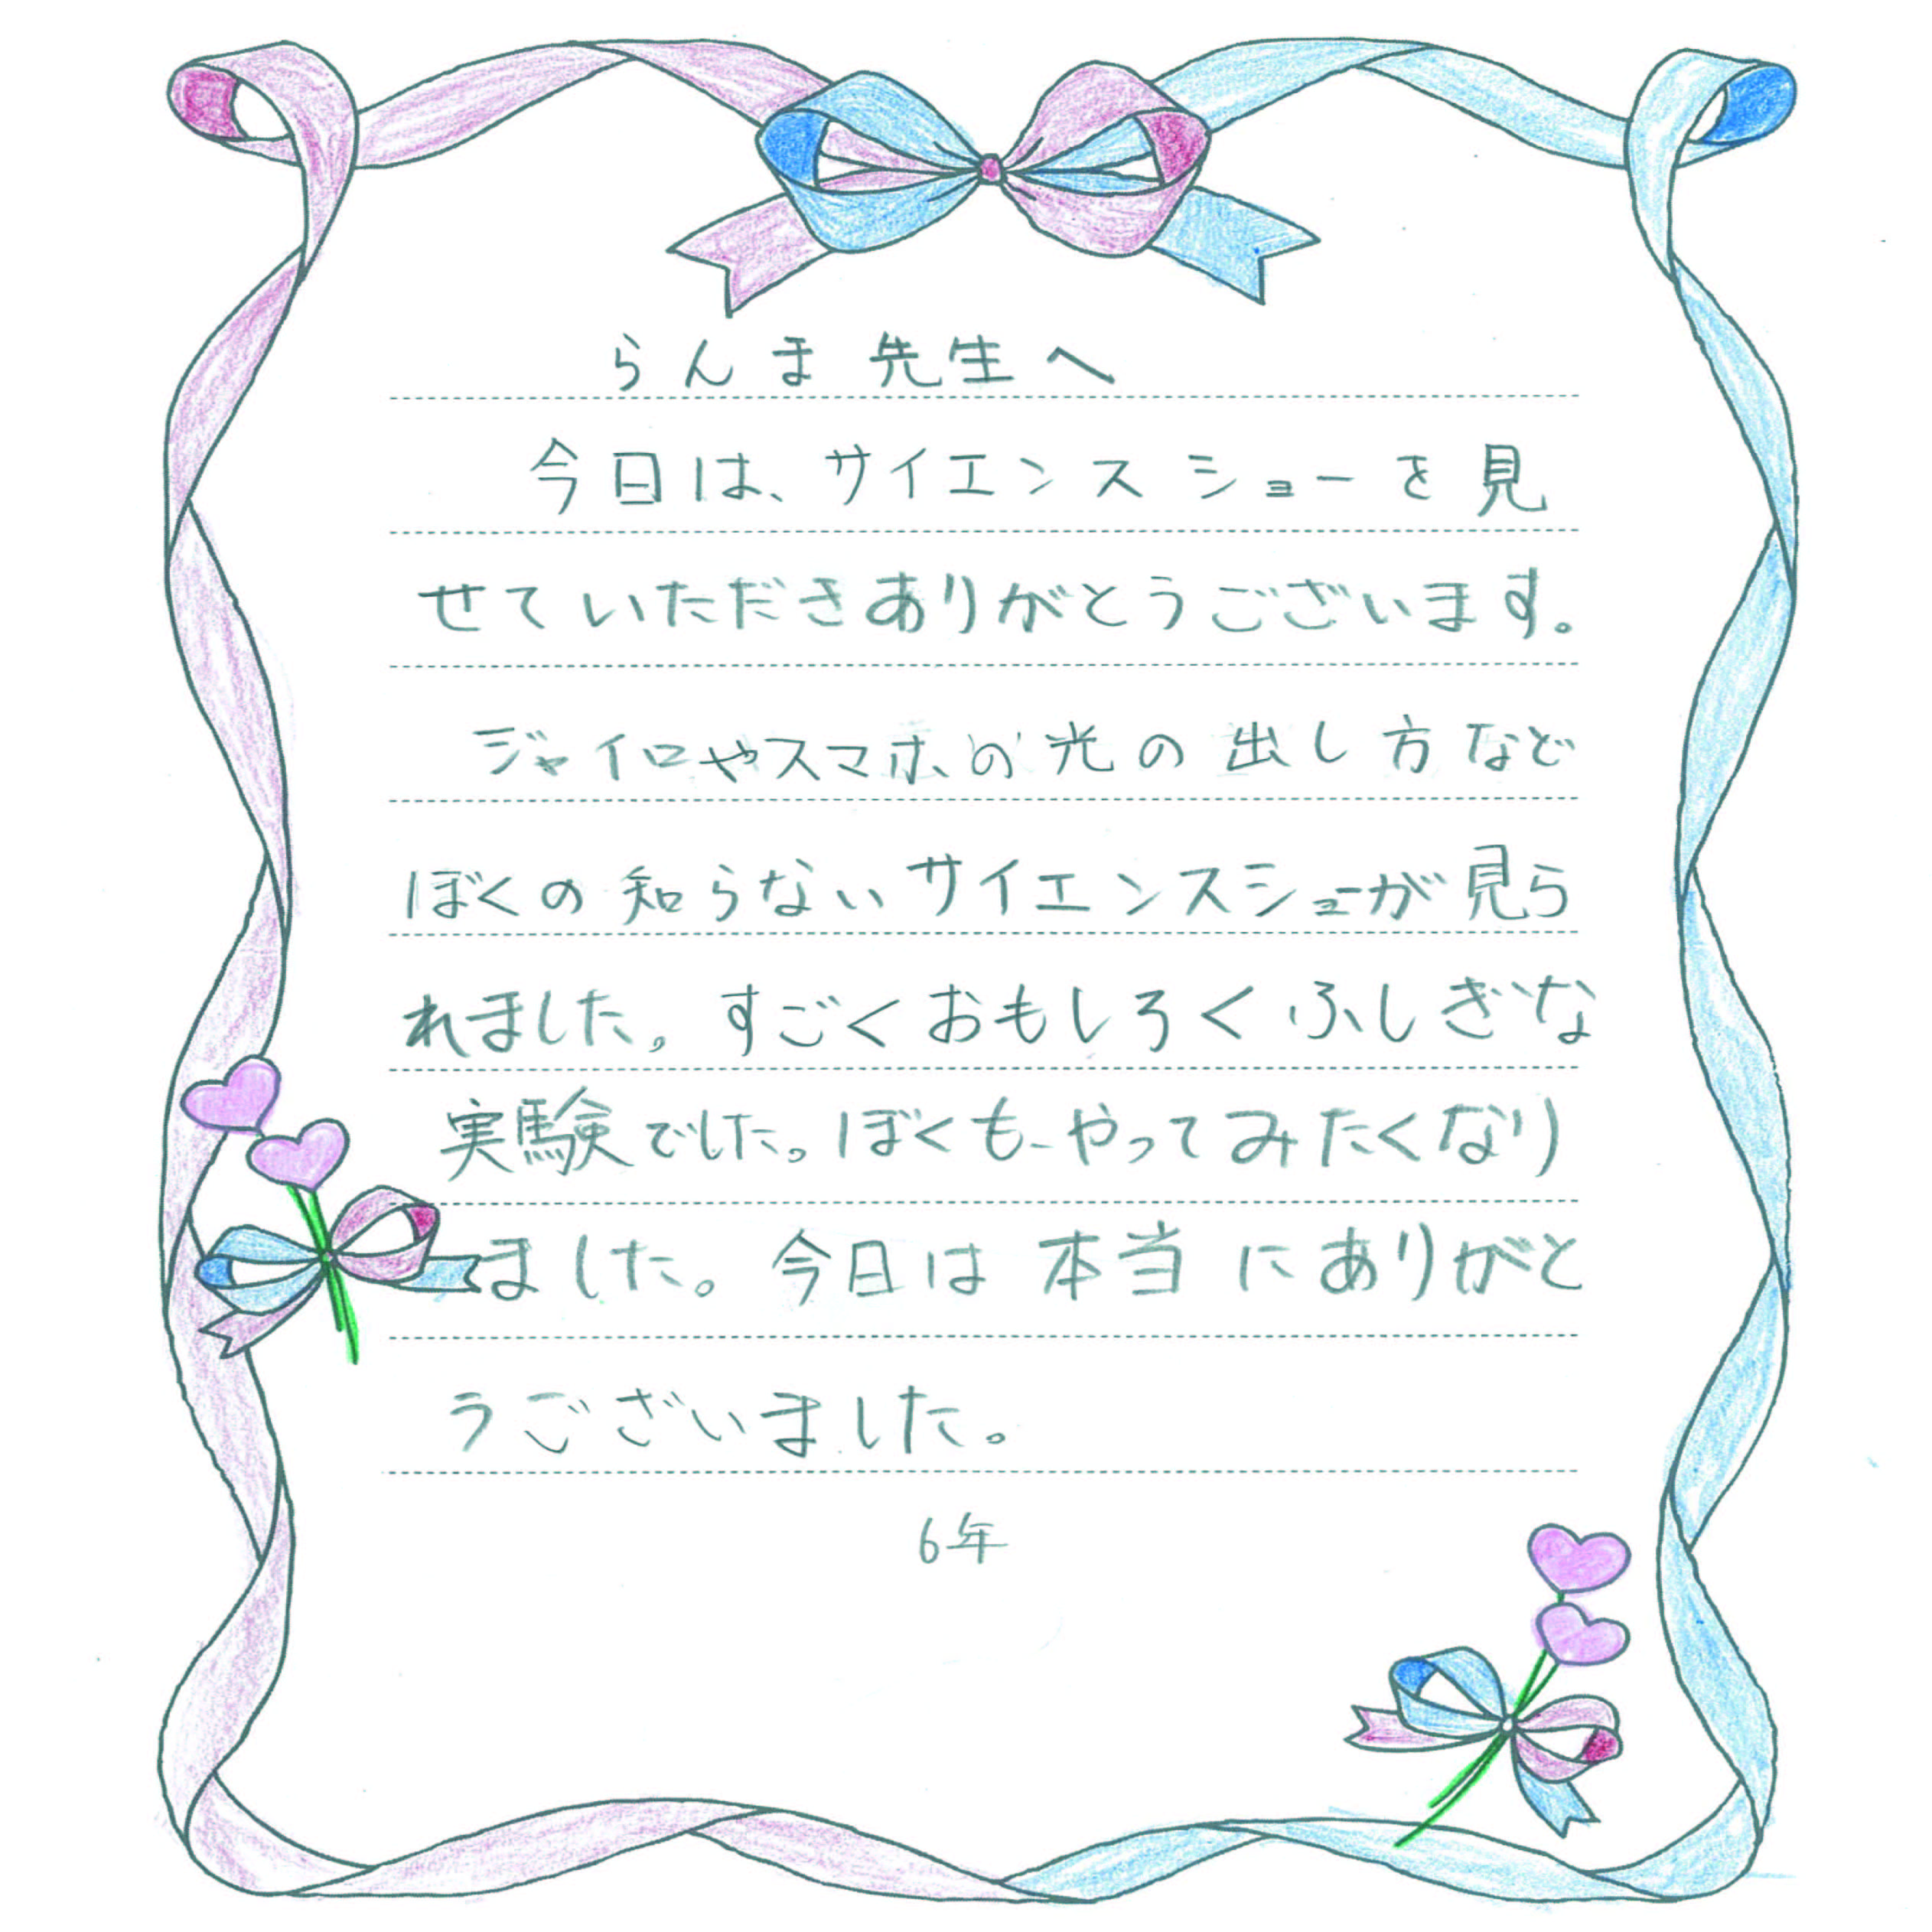 らんま先生へ
今日は、サイエンスショーを見
せていただきありがとうございます。
ジャイロやスマホの光の出し方など
ぼくの知らないサイエンスショーが見ら
れました。すごくおもしろくふしぎな
実験でした。ぼくもやってみたくなり
ました。今日は本当にありがと
うございました。
6年